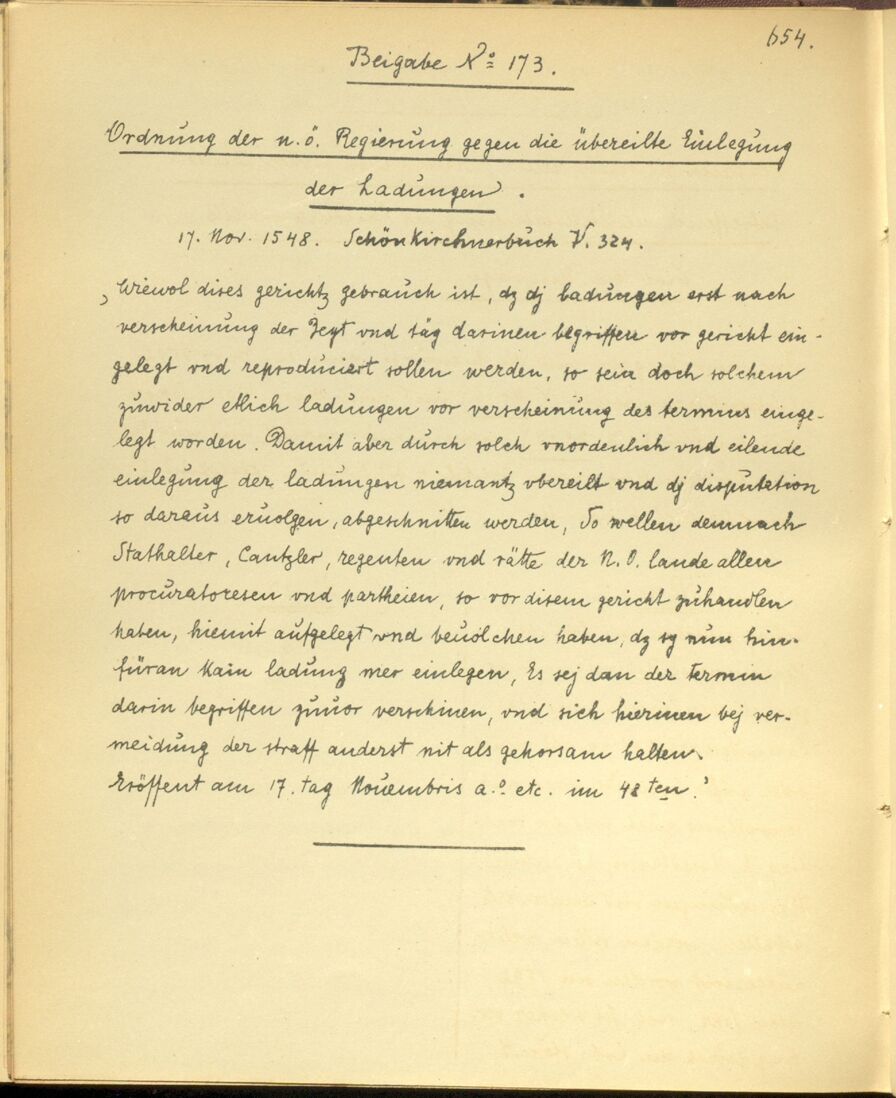 654.
Beigabe No 173.
Ordnung der n. ö. Regierung gegen die übereilte Einlegung
der Ladungen.
17. Nov. 1548. Schönkirchnerbuch V. 324.
‚Wiewol dises gerichtz gebrauch ist, dz dj ladungen erst nach
verscheinung der Zeyt vnd täg darinen begriffen vor gericht ein-
gelegt vnd reproduciert sollen werden, so sein doch solchem
zuwider etlich ladungen vor verscheinung des termins einge-
legt worden. Damit aber durch solch vnordenlich vnd eilende
einlegung der ladungen niemantz vbereilt vnd dj disputation
so daraus eruolgen, abgeschnitten werden, So wellen demnach
Stathalter, Cantzler, regenten vnd rätte der N. O. lande allen
procuratoresen vnd partheien, so vor disem gericht zuhandlen
haben, hiemit aufgelegt vnd beuolchen haben, dz sy nun hin-
füran kain ladung mer einlegen, Es sej dan der termin
darin begriffen zuuor verschinen, vnd sich hierinen bej ver-
meidung der straff anderst nit als gehorsam halten.
Eröffent am 17. tag Nouembris a.o etc. im 48 ten.‘